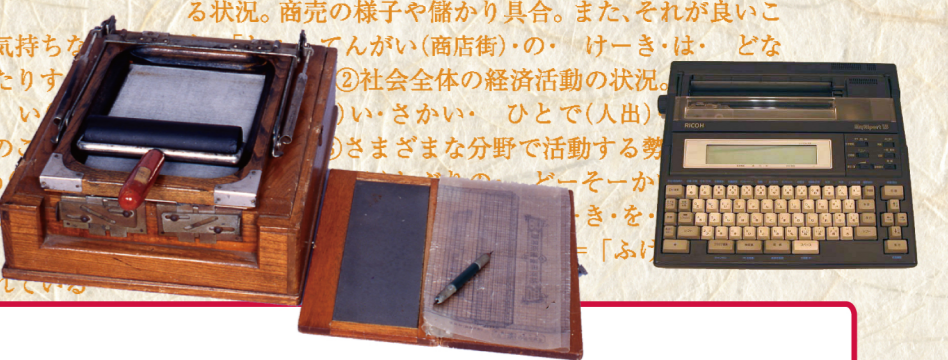 る状況。商売の様子や儲かり具合。また、それが良いこ
気持ちな てんがい(商店街)・の・ けーき・は・ どな
たりす ②社会全体の経済活動の状況。
い い・さかい・ ひとで(人出)
のこ さまざまな分野で活動する勢
の どーそーか
き・を・
=「ふけ
れている
RICOH